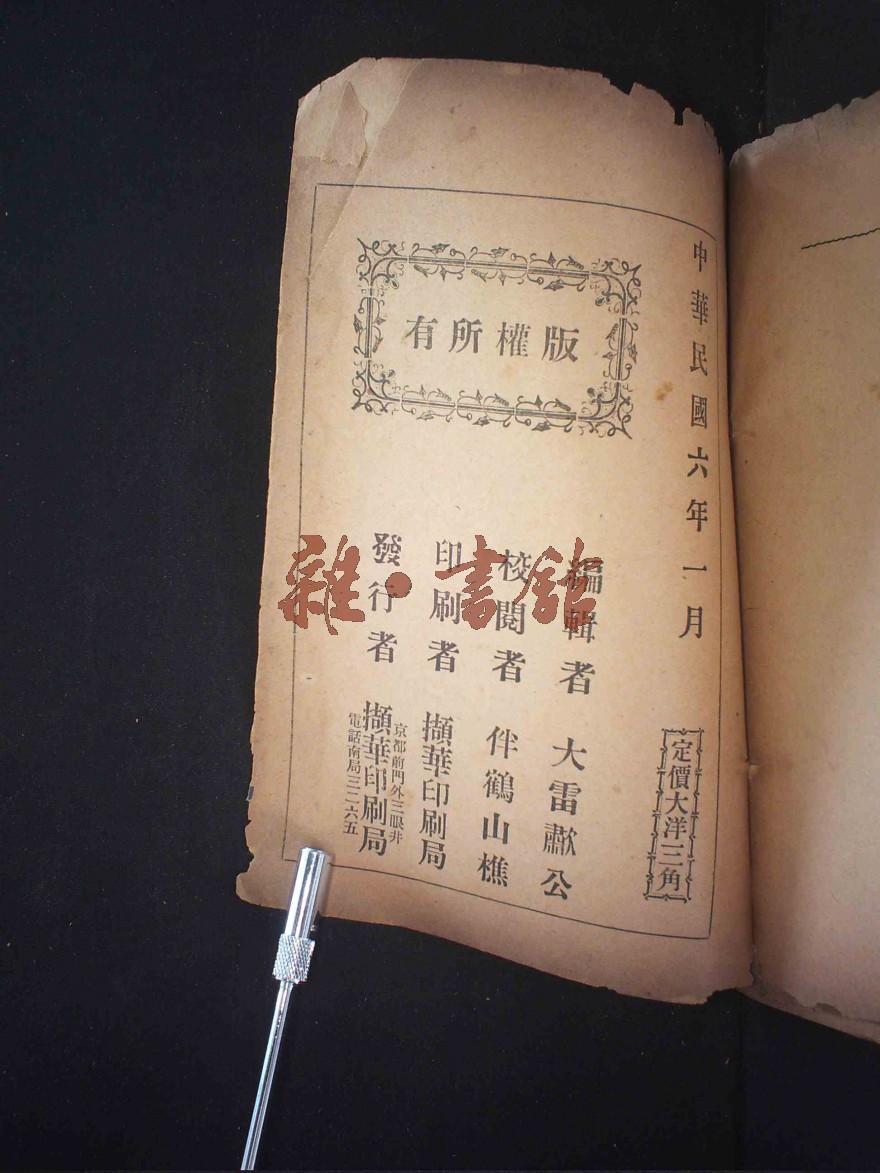 中華民國六年一月
定價大洋三角
版權所有
編輯者 大雷歗公
校閱者 伴鶴山樵
印刷者 擷華印刷局
發行者 擷華印刷局
京都前門外三眼井
電話南局三二六五
雜·書館